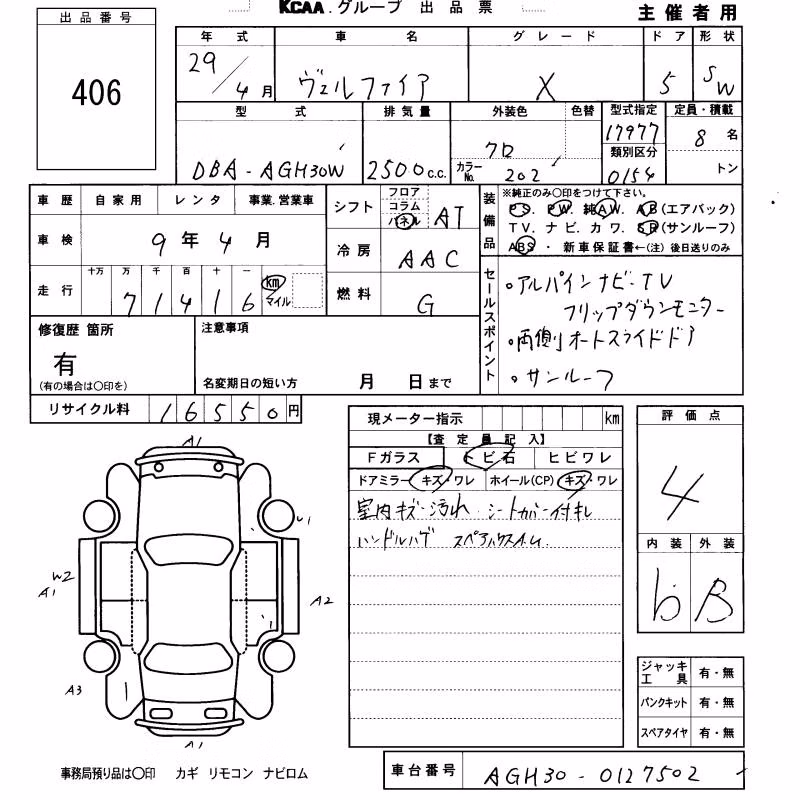 KCAA.グループ 出品票
主催者用
出品番号
406
年式 車名 グレード ドア 形状
29/4月 ヴェルファイア X 5 SW
型式 排気量 外装色 色替 型式指定 定員・積載
DBA-AGH30W 2500c.c. クロ カラーNo. 202 17977 8名
類別区分 0154 トン
車歴 自家用 レンタ 事業.営業車
車検 9年4月
走行 十万 万 千 百 十 一
71416 km マイル
シフト フロア コラム パネル AT
冷房 AAC
燃料 G
装備品 ※純正のみ〇印をつけて下さい。
PS. PW. 純AW. AB(エアバック)
TV.ナビ.カワ.SR(サンルーフ)
ABS・新車保証書←(注)後日送りのみ
セールスポイント
・アルパインナビ-TV
フリップダウンモニター
・両側オートスライドドア
・サンルーフ
修復歴 箇所
有
(有の場合は〇印を)
注意事項
名変期日の短い方 月 日まで
リサイクル料 16550円
現メーター指示 km
【査定員記入】
Fガラス トビ石 ヒビワレ
ドアミラー キズ・ワレ ホイール(CP) キズ・ワレ
室内キズ・汚れ シートカバー付キ
ハンドルハゲ
評価点
4
内装 外装
b B
A1
W2
A1
A2
A3
A1
ジャッキ工具 有・無
パンクキット 有・無
スペアタイヤ 有・無
事務局預り品は〇印 カギ リモコン ナビロム
車台番号 AGH30-0127502